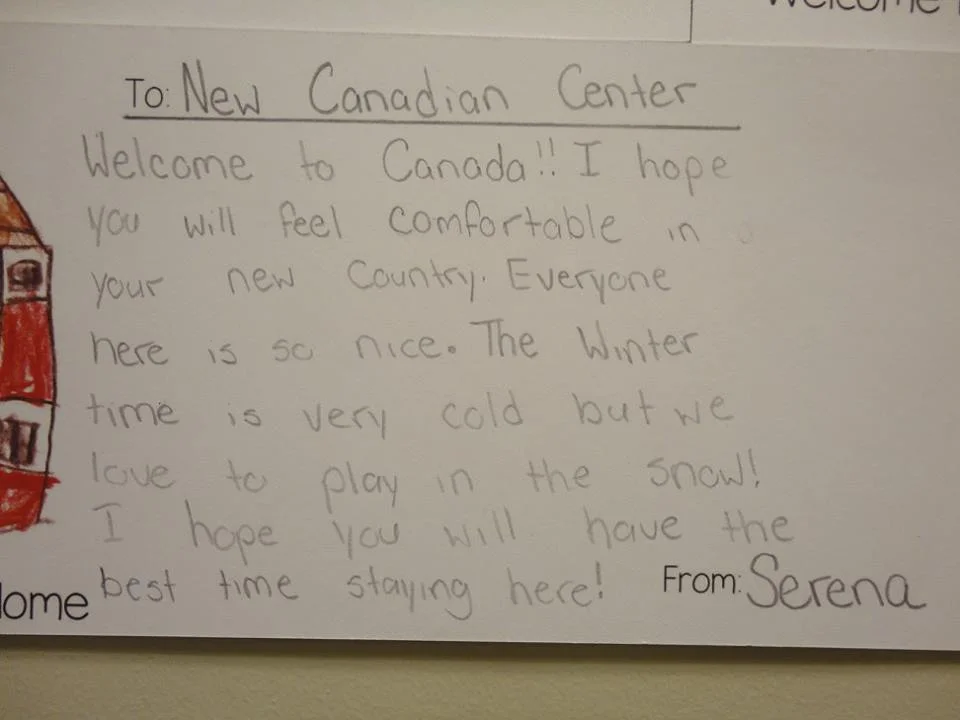 Welcome
To: New Canadian Center
Welcome to Canada!! I hope
you will feel comfortable in
your new Country. Everyone
here is so nice. The Winter
time is very cold but we
love to play in the snow!
I hope you will have the
best time staying here!
From: Serena